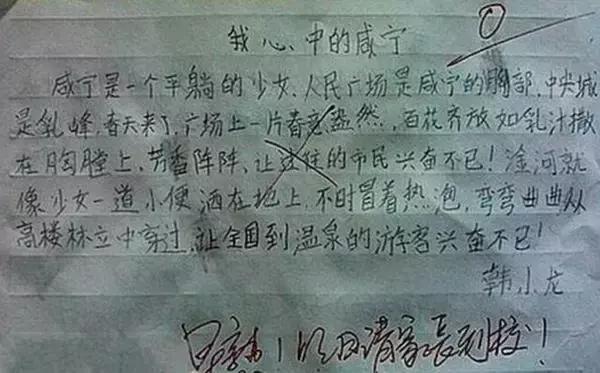 0
我心中的咸宁
咸宁是一个平躺的少女、人民广场是咸宁的胸部,中央城
是乳峰,春天来了,广场上一片春意盎然,百花齐放如乳汁撒
在胸膛上、芳香阵阵、让过往的市民兴奋不已!淦河就
像少女一道小便洒在地上,不时冒着热泡,弯弯曲曲从
高楼林立中穿过,让全国到温泉的游客兴奋不已!
韩小龙
!明日请家長到校!